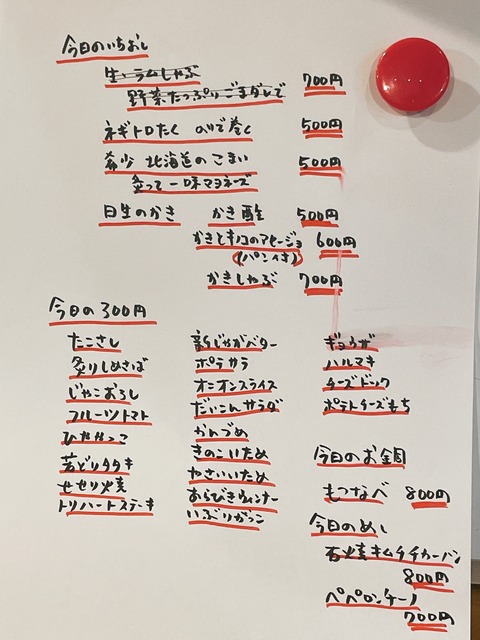 今日のいちおし
生ラムしゃぶ
野菜たっぷりごまダレで 700円
ネギトロたく のりで巻く 500円
希少 北海道のこまい 500円
炙って一味マヨネーズ
日生のかき かき酢 500円
かきとキノコのアヒージョ 600円
(パン付き)
かきしゃぶ 700円
今日の300円
たこさし 新じゃがバター ギョウザ
炙りしめさば ポテサラ ハルマキ
じゃこおろし オニオンスライス チーズドック
フルーツトマト だいこんサラダ ポテトチーズもち
ひややっこ かんづめ
若どりタタキ きのこいため
せせり焼き やさいいため
トリハートステーキ あらびきウィンナー
いぶりがっこ
今日のお鍋
もつなべ 800円
今日のめし
石焼キムチチャーハン
800円
ペペロンチーノ
700円